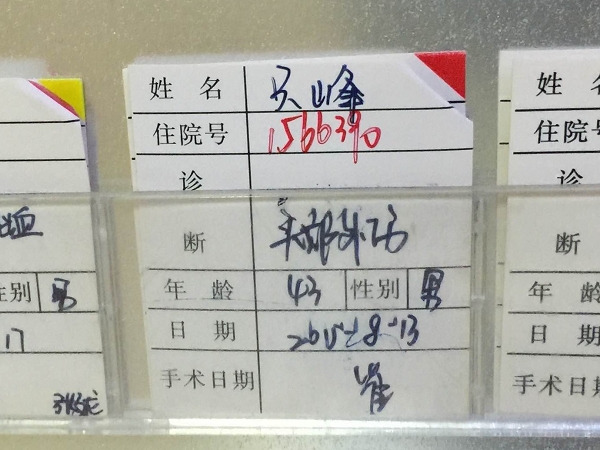 姓 名 吴峰
住院号 1566390
诊
断 头部外伤
年 龄 43 性别 男
日 期
手术日期 崔
性别 男
17
姓
住院号
诊
断
年龄
日 期
手术日期